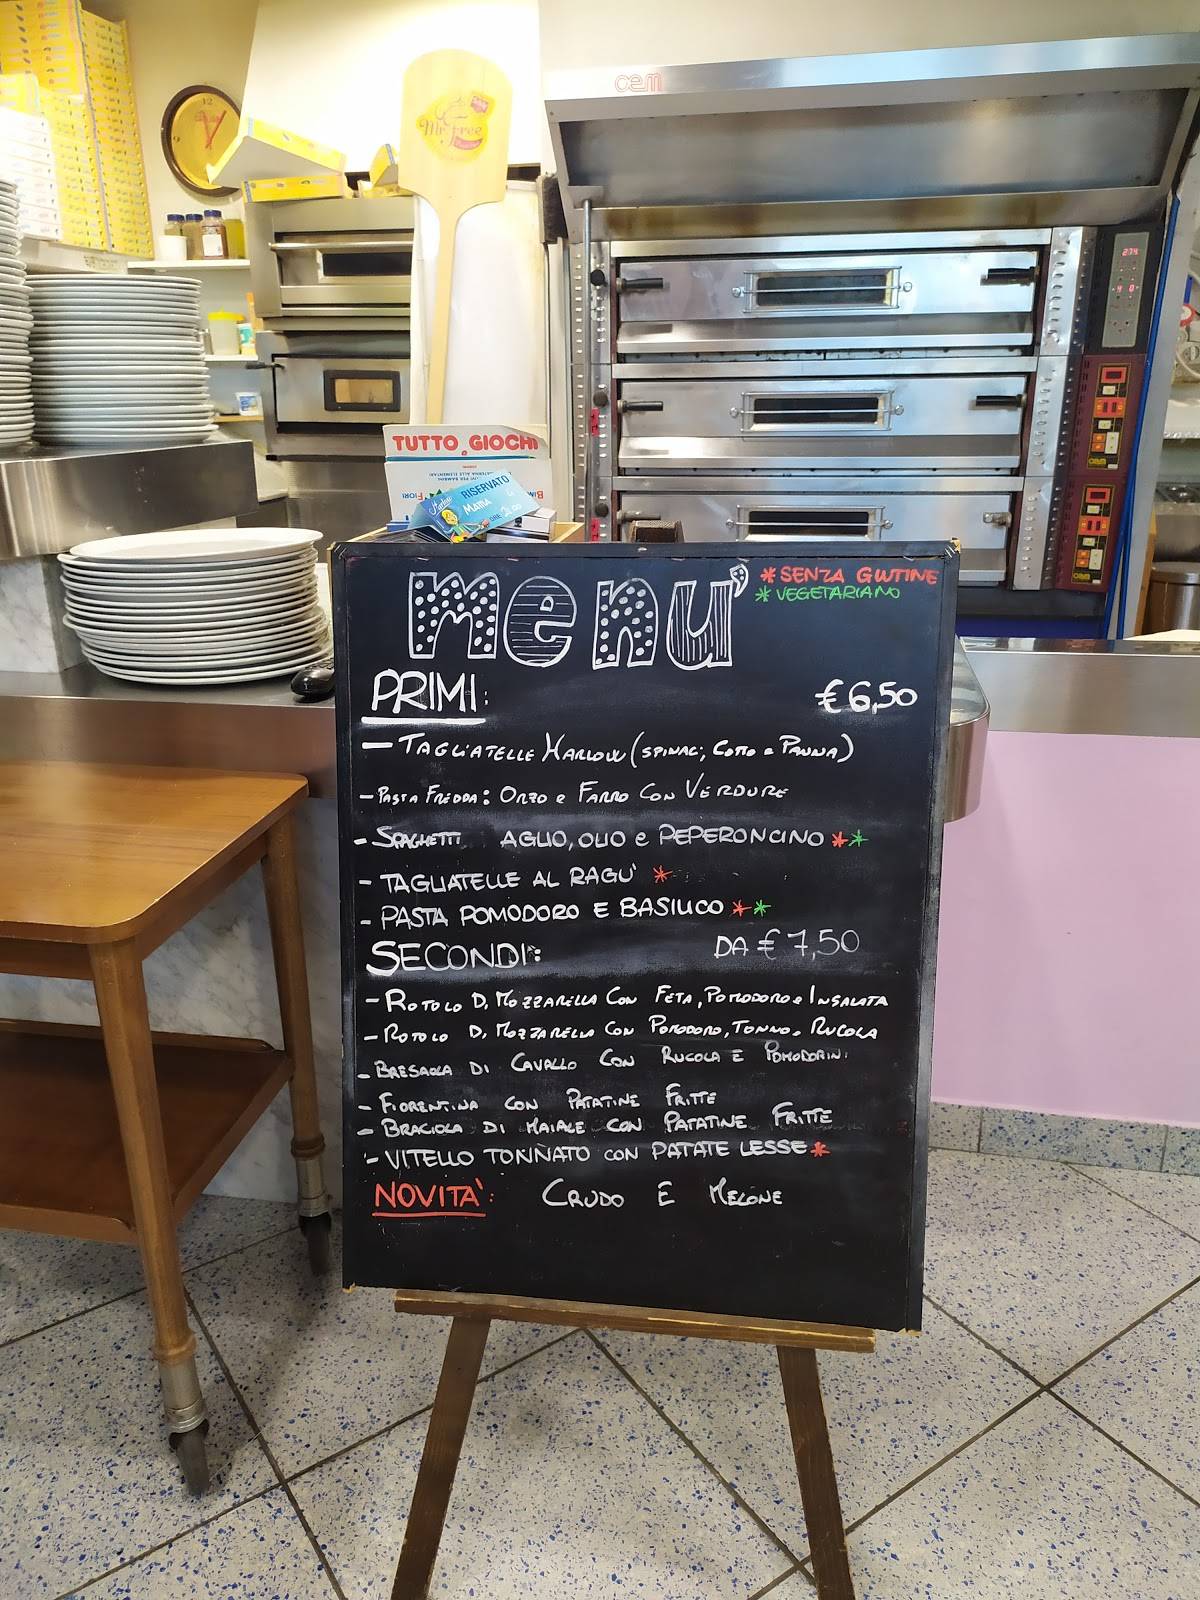 cem
Mr Free
274
TUTTO GIOCHI
RISERVATO
MARIA
ORE
FIORI
menu'
*SENZA GLUTINE
*VEGETARIANO
PRIMI:
€6,50
- TAGLIATELLE HARLOW (SPINACI, COTTO e PANNA)
- PASTA FREDDA: ORZO e FARRO CON VERDURE
- SPAGHETTI AGLIO, OLIO e PEPERONCINO **
- TAGLIATELLE AL RAGU' *
- PASTA POMODORO E BASILICO **
SECONDI:
DA €7,50
- ROTOLO DI MOZZARELLA CON FETA, POMODORO e INSALATA
- ROTOLO DI MOZZARELLA CON POMODORO, TONNO e RUCOLA
- BRESAOLA DI CAVALLO CON RUCOLA E POMODORINI
- FIORENTINA CON PATATINE FRITTE
- BRACIOLA DI MAIALE CON PATATINE FRITTE
- VITELLO TONNATO CON PATATE LESSE *
NOVITA': CRUDO E MELONE